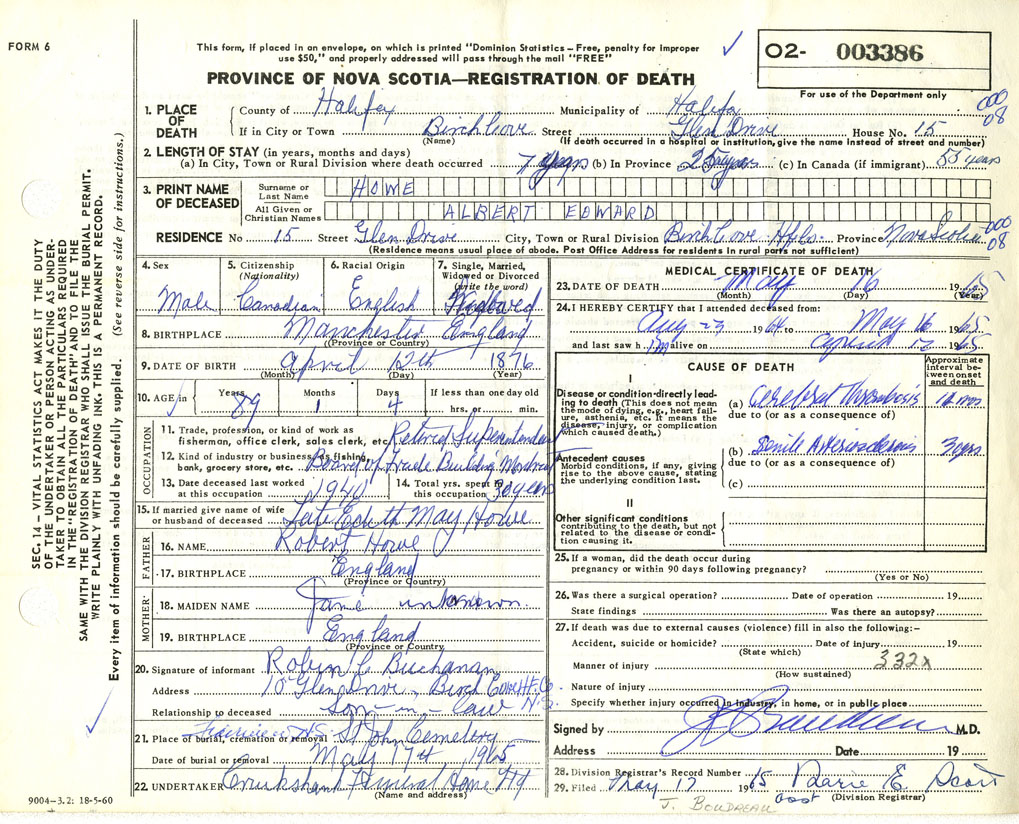 FORM 6
This form, if placed in an envelope, on which is printed "Dominion Statistics – Free, penalty for improper
use $50," and properly addressed will pass through the mail "FREE"
✓
O2- 003386
PROVINCE OF NOVA SCOTIA—REGISTRATION OF DEATH
For use of the Department only
000
08
1. PLACE OF DEATH
County of Halifax Municipality of Halifax
If in City or Town Birch Cove Street Glen Drive House No. 15
(Name) (If death occurred in a hospital or institution, give the name instead of street and number)
2. LENGTH OF STAY (in years, months and days)
(a) In City, Town or Rural Division where death occurred 7 years (b) In Province 25 years (c) In Canada (if immigrant) 55 years
3. PRINT NAME OF DECEASED
Surname or Last Name HOWE
All Given or Christian Names ALBERT EDWARD
RESIDENCE No 15 Street Glen Drive City, Town or Rural Division Birch Cove Hfx Province Nova Scotia
000
08
(Residence means usual place of abode. Post Office Address for residents in rural parts not sufficient)
4. Sex Male
5. Citizenship (Nationality) Canadian
6. Racial Origin English
7. Single, Married, Widowed or Divorced (write the word) Widowed
8. BIRTHPLACE Manchester England
(Province or Country)
9. DATE OF BIRTH April 12th 1876
(Month) (Day) (Year)
10. AGE in Years 89 Months 1 Days 4 If less than one day old hrs. or min.
OCCUPATION
11. Trade, profession, or kind of work as
fisherman, office clerk, sales clerk, etc. Retired Superintendent
12. Kind of industry or business, as fishing,
bank, grocery store, etc. Board of Trade Building Montreal
13. Date deceased last worked
at this occupation 1940
14. Total yrs. spent in
this occupation 30 years
15. If married give name of wife
or husband of deceased Late Edith May Howe
FATHER
16. NAME Robert Howe
17. BIRTHPLACE England
(Province or Country)
MOTHER
18. MAIDEN NAME Jane unknown
19. BIRTHPLACE England
(Province or Country)
20. Signature of informant Robin C Buchanan
Address 10 Glen Drive, Birch Cove Hfx Co. N.S.
Relationship to deceased Son-in-law
21. Place of burial, cremation or removal Fairview N.S. St John Cemetery
Date of burial or removal May 17th 1965
22. UNDERTAKER Cruikshank Funeral Home Hfx
(Name and address)
MEDICAL CERTIFICATE OF DEATH
23. DATE OF DEATH May 16 1965
(Month) (Day) (Year)
24. I HEREBY CERTIFY that I attended deceased from:
Aug 27 1964 to May 16 1965
and last saw him alive on April 1965
CAUSE OF DEATH
Approximate interval between onset and death
I
Disease or condition directly leading to death (This does not mean the mode of dying, e.g., heart failure, asthenia, etc. It means the disease, injury, or complication which caused death.)
(a) Cerebral Thrombosis mos
due to (or as a consequence of)
Antecedent causes
Morbid conditions, if any, giving rise to the above cause, stating the underlying condition last.
(b) Senile Arteriosclerosis 3 yrs
due to (or as a consequence of)
(c)
II
Other significant conditions
contributing to the death, but not related to the disease or condition causing it.
25. If a woman, did the death occur during
pregnancy or within 90 days following pregnancy?
(Yes or No)
26. Was there a surgical operation? Date of operation 19
State findings Was there an autopsy?
27. If death was due to external causes (violence) fill in also the following:–
Accident, suicide or homicide? Date of injury 19
(State which)
332x
Manner of injury
(How sustained)
Nature of injury
Specify whether injury occurred in industry, in home, or in public place
Signed by M.D.
Address Date 19
28. Division Registrar's Record Number
29. Filed May 17 1965 Marie E Scott
asst (Division Registrar)
J. BOUDREAU
SEC. 14 – VITAL STATISTICS ACT MAKES IT THE DUTY
OF THE UNDERTAKER OR PERSON ACTING AS UNDER-
TAKER TO OBTAIN ALL THE PARTICULARS REQUIRED
IN THE "REGISTRATION OF DEATH" AND TO FILE THE
SAME WITH THE DIVISION REGISTRAR WHO SHALL ISSUE THE BURIAL PERMIT.
WRITE PLAINLY WITH UNFADING INK. THIS IS A PERMANENT RECORD.
Every item of information should be carefully supplied. (See reverse side for instructions.)
9004–3.2: 18-5-60